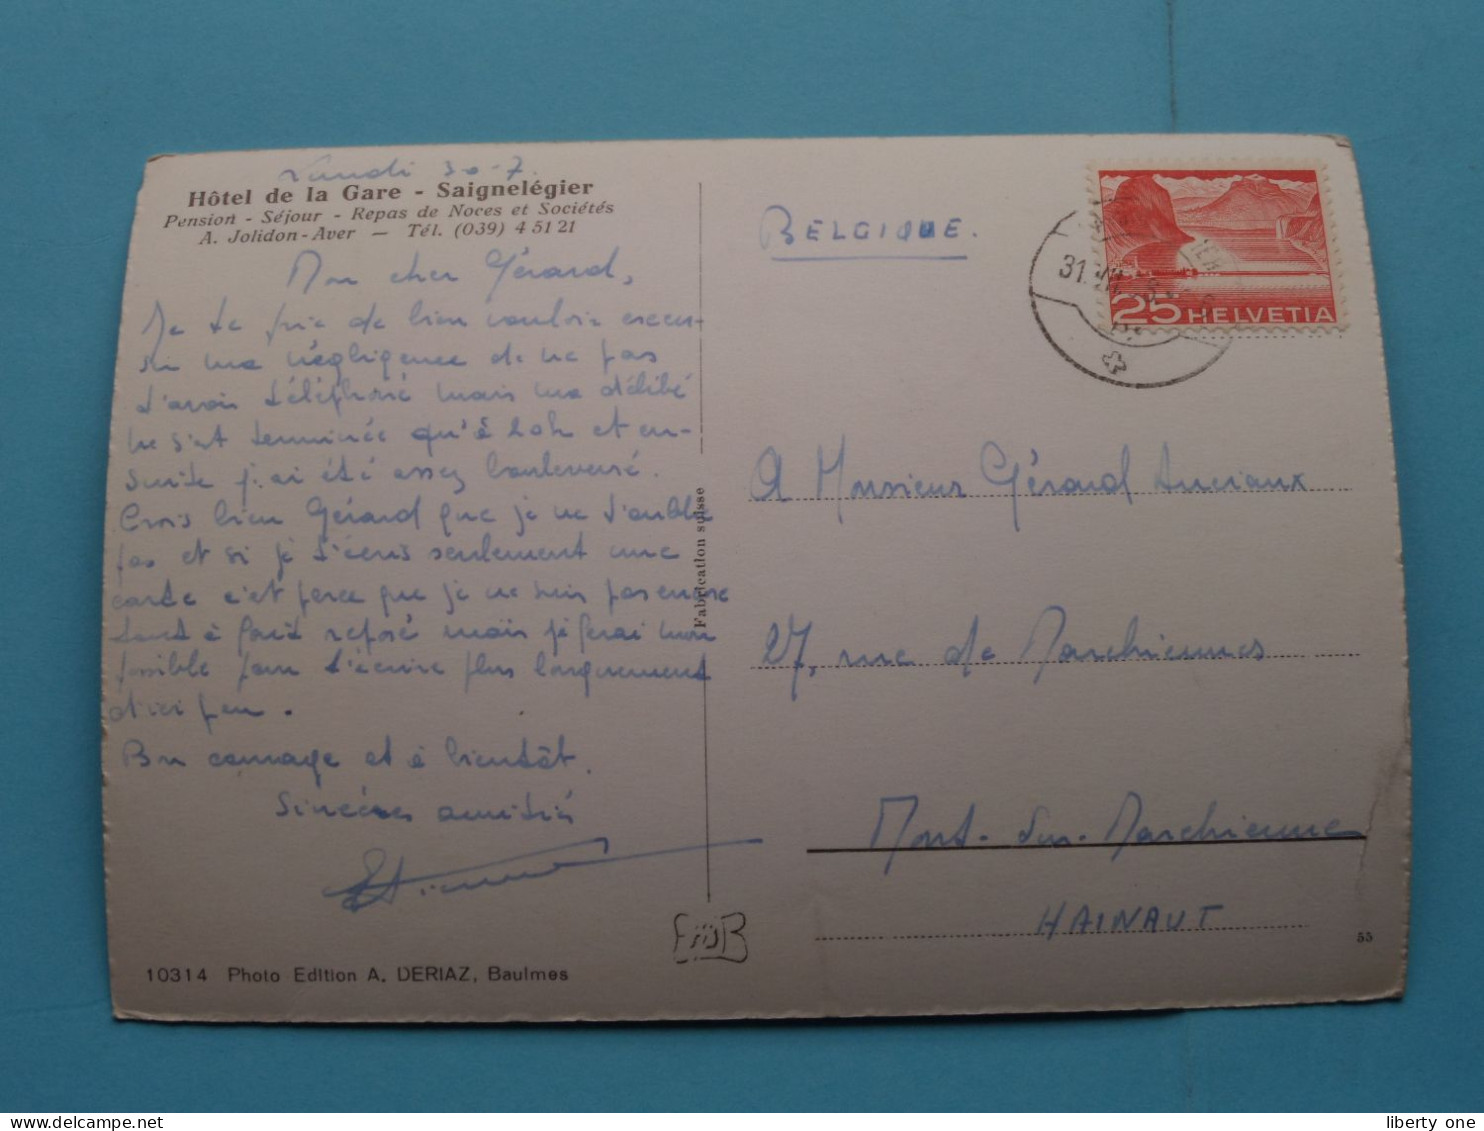 Lundi 30-7.
Hôtel de la Gare - Saignelégier
Pension - Séjour - Repas de Noces et Sociétés
A. Jolidon-Aver — Tél. (039) 4 51 21
Mon cher Gérard,
Je te prie de bien vouloir excu-
ser ma négligence de ne pas
t'avoir téléphoné mais ma délibé
ne s'est terminée qu'à 20h et en-
suite j'ai été assez bouleversé.
Crois bien Gérard que je ne t'oublie
pas et si je t'écris seulement une
carte c'est parce que je ne suis pas encore
tout à fait reposé mais je ferai mon
possible pour t'écrire plus longuement
d'ici peu.
Bon courage et à bientôt.
Sincères amitiés
10314 Photo Edition A. DERIAZ, Baulmes
Fabrication suisse
BELGIQUE.
25 HELVETIA
31. VII.
A Monsieur Gérard Anciaux
27, rue de Marchiennes
Mont-sur-Marchienne
HAINAUT
55
liberty one